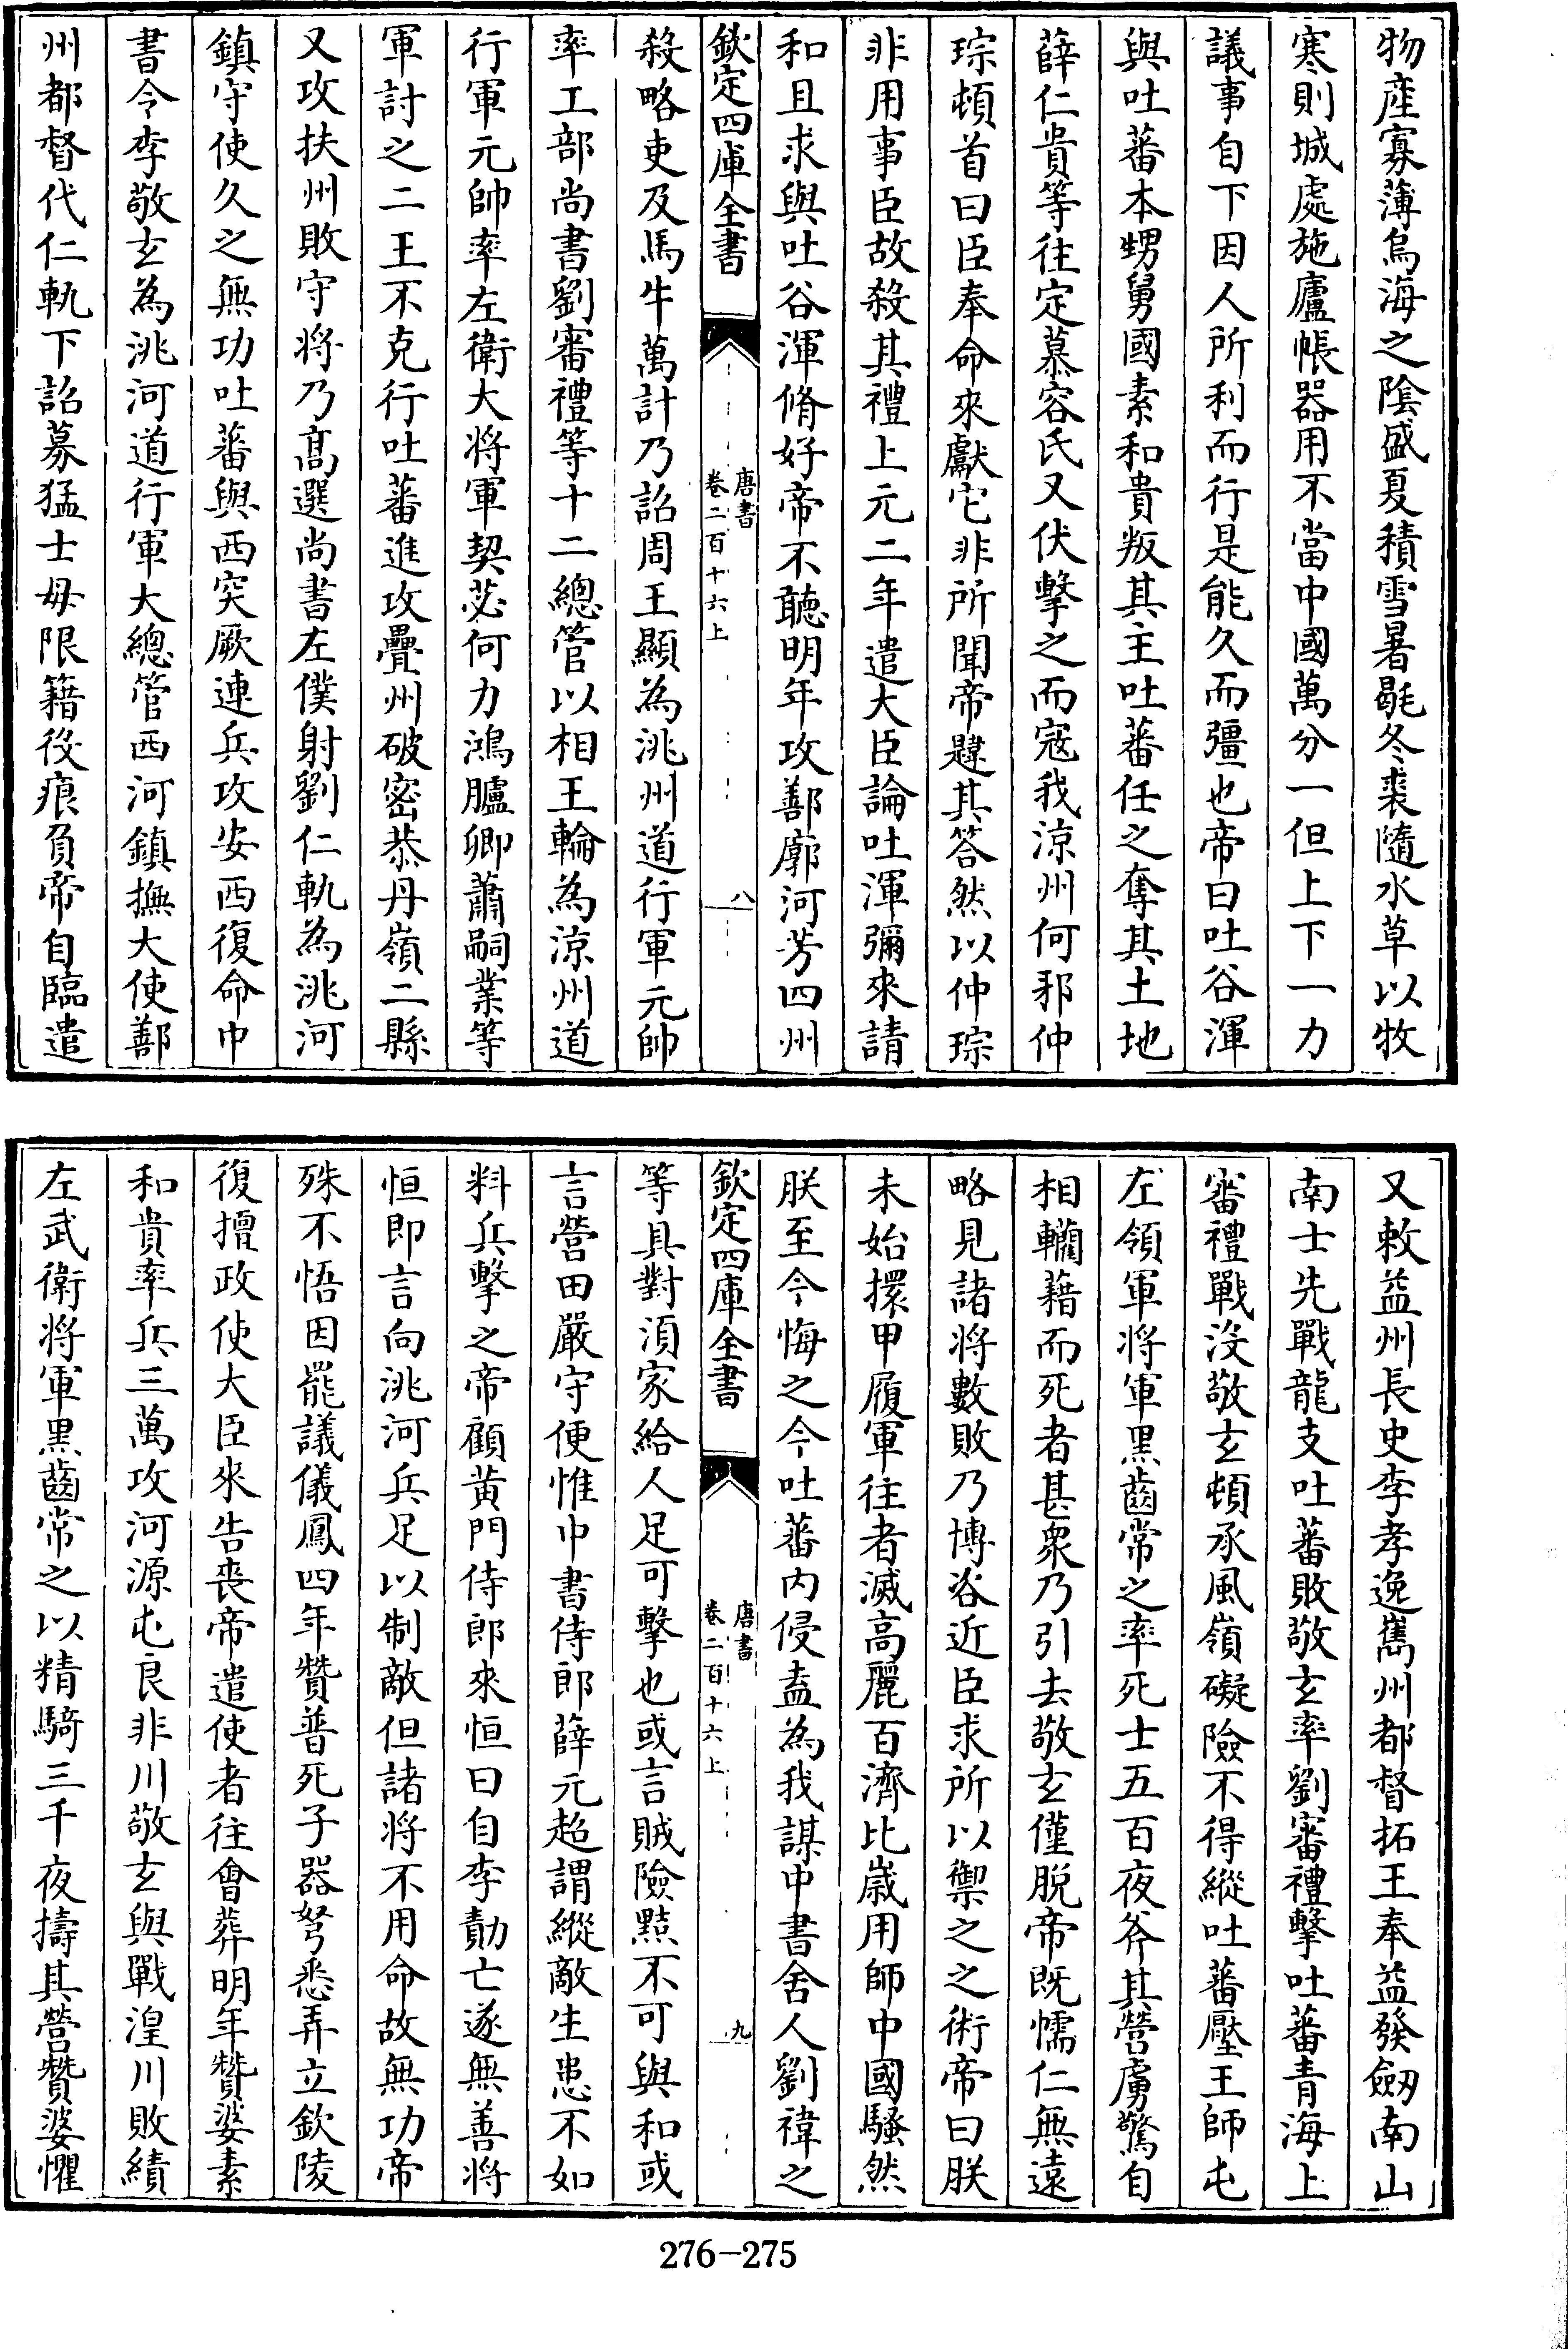 物產寡薄烏海之隂盛夏積雪暑毼冬裘隨水草以牧
寒則城處施廬帳器用不當中國萬分一但上下一力
議事自下因人所利而行是能久而彊也帝曰吐谷渾
與吐蕃本甥舅國素和貴叛其主吐蕃任之奪其土地
薛仁貴等往定慕容氏又伏擊之而寇我涼州何邪仲
琮頓首曰臣奉命來獻它非所聞帝韙其答然以仲琮
非用事臣故殺其禮上元二年遣大臣論吐渾彌來請
和且求與吐谷渾脩好帝不聽明年攻鄯廓河芳四州
欽定四庫全書
唐書
卷二百十六上
八
殺略吏及馬牛萬計乃詔周王顯為洮州道行軍元帥
率工部尚書劉審禮等十二總管以相王輪為涼州道
行軍元帥率左衛大將軍契苾何力鴻臚卿蕭嗣業等
軍討之二王不克行吐蕃進攻疊州破密恭丹嶺二縣
又攻扶州敗守将乃髙選尚書左僕射劉仁軌為洮河
鎮守使久之無功吐蕃與西突厥連兵攻安西復命中
書令李敬玄為洮河道行軍大總管西河鎮撫大使鄯
州都督代仁軌下詔募猛士毋限籍役痕負帝自臨遣
又敕益州長史李孝逸巂州都督拓王奉益發劒南山
南士先戰龍支吐蕃敗敬玄率劉審禮擊吐蕃青海上
審禮戰沒敬玄頓承風嶺礙險不得縱吐蕃壓王師屯
左領軍将軍黑齒常之率死士五百夜斧其營虜驚自
相轥藉而死者甚衆乃引去敬玄僅脫帝既懦仁無遠
略見諸将數敗乃博咨近臣求所以禦之之術帝曰朕
未始擐甲履軍往者滅高麗百濟比歲用師中國騷然
朕至今悔之今吐蕃內侵盍為我謀中書舍人劉禕之
欽定四庫全書
唐書
卷二百十六上
九
等具對須家給人足可擊也或言賊險黠不可與和或
言營田嚴守便惟中書侍郎薛元超謂縱敵生患不如
料兵擊之帝顧黃門侍郎來恒曰自李勣亡遂無善將
恒即言向洮河兵足以制敵但諸将不用命故無功帝
殊不悟因罷議儀鳳四年贊普死子器弩悉弄立欽陵
復擅政使大臣來告喪帝遣使者往會葬明年贊婆素
和貴率兵三萬攻河源屯良非川敬玄與戰湟川敗績
左武衛将軍黑齒常之以精騎三千夜擣其營贊婆懼
276-275